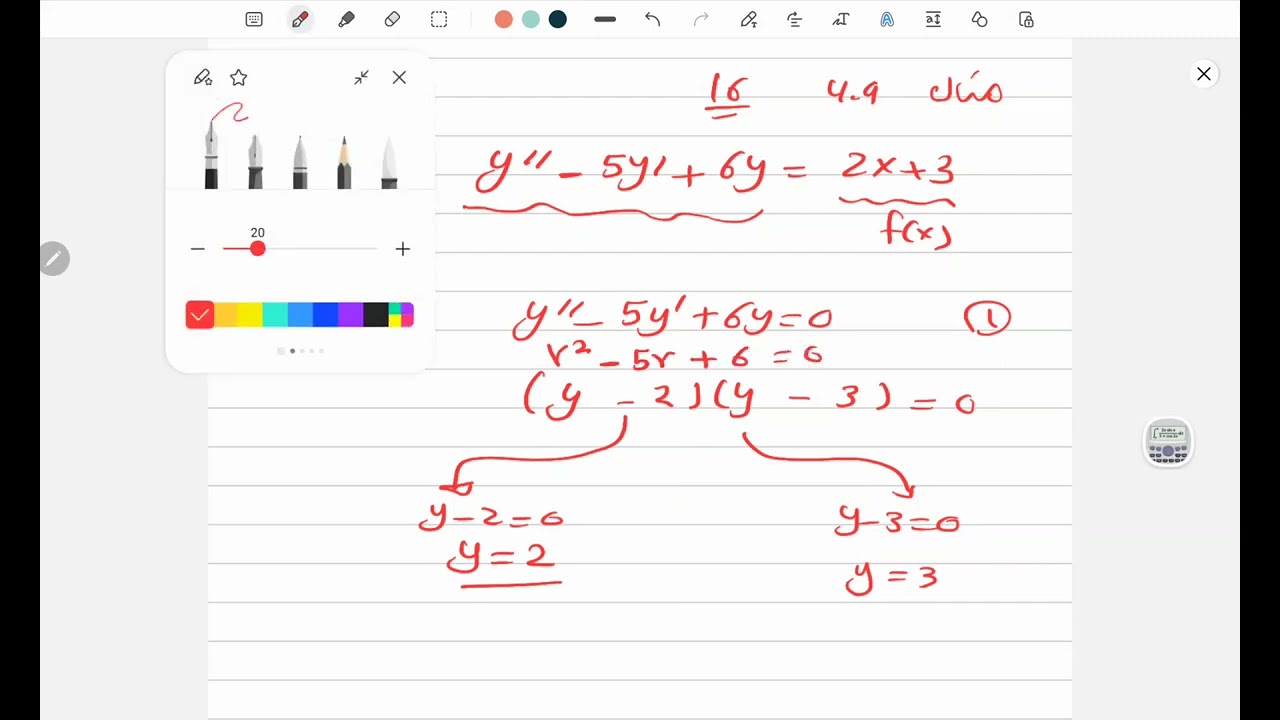 16 4.9
y'' - 5y' + 6y = 2x+3
f(x)
20
y'' - 5y' + 6y = 0 ①
r² - 5r + 6 = 0
(y - 2)(y - 3) = 0
y - 2 = 0 y - 3 = 0
y = 2 y = 3